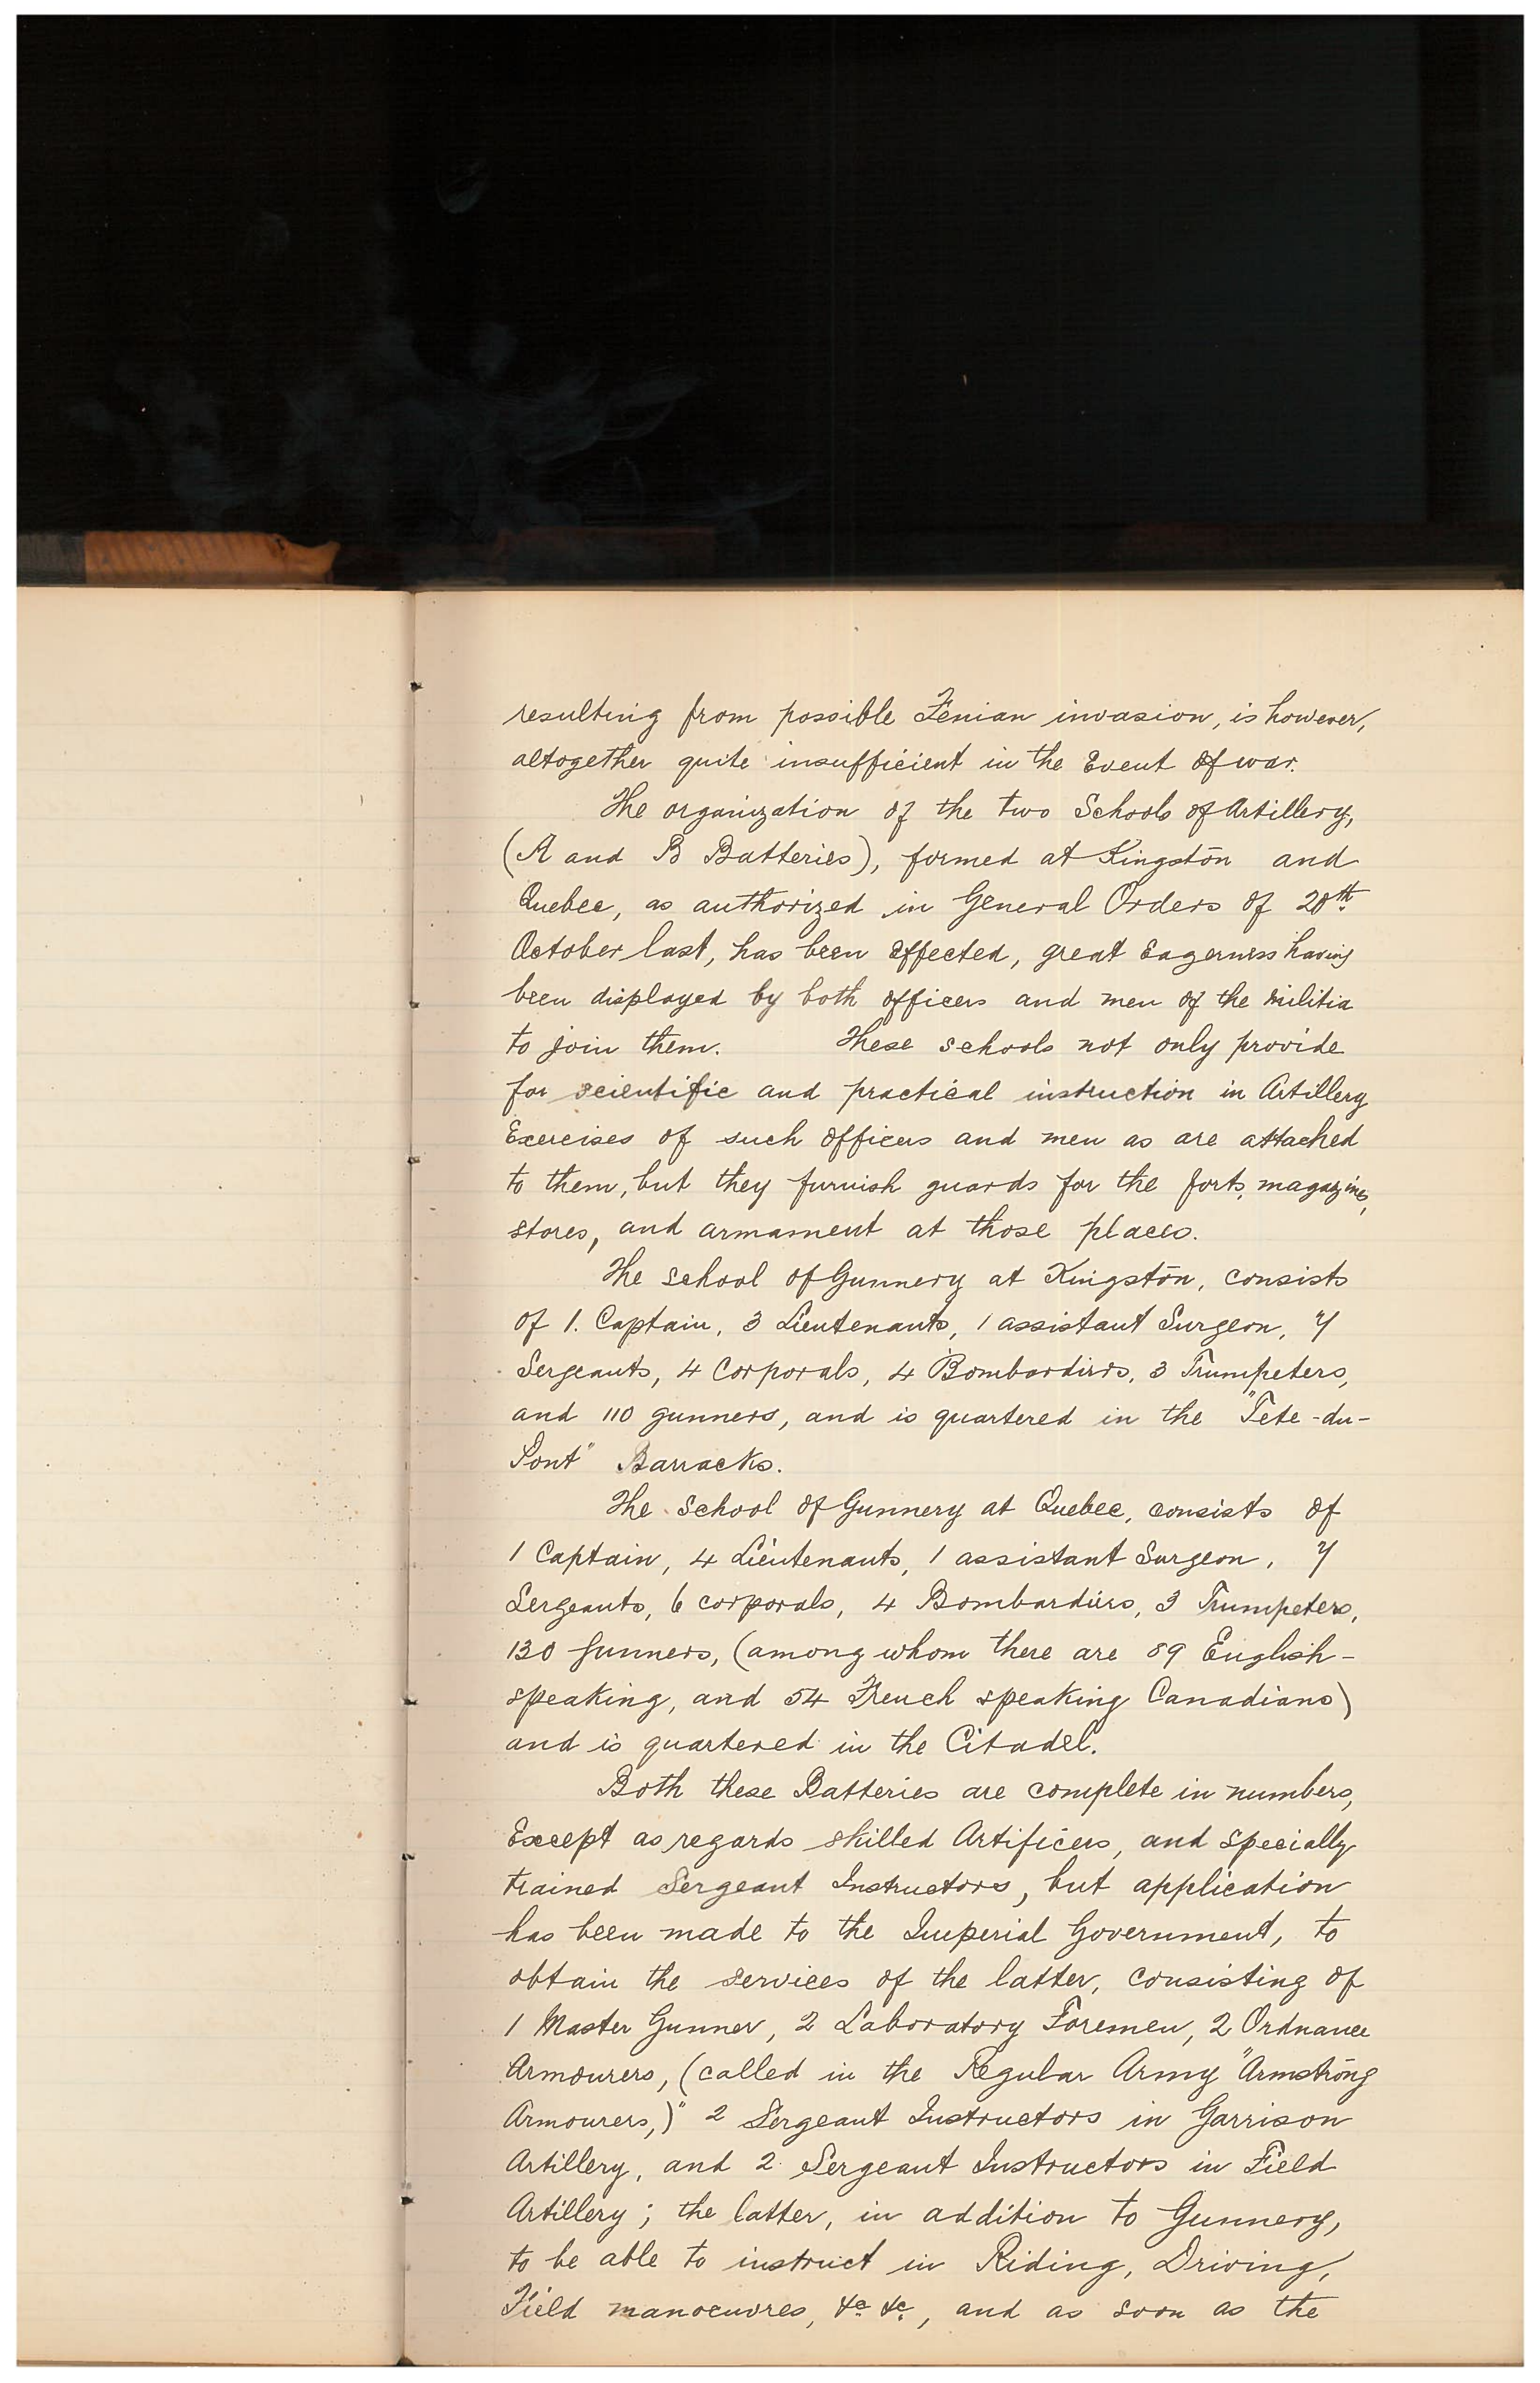 resulting from possible Fenian invasion, is however,
altogether quite insufficient in the Event of war.
The organization of the two Schools of Artillery,
(A and B Batteries), formed at Kingston and
Quebec, as authorized in General Orders of 20th
October last, has been Effected, great Eagerness having
been displayed by both officers and men of the Militia
to join them. These schools not only provide
for scientific and practical instruction in Artillery
Exercises of such Officers and men as are attached
to them, but they furnish guards for the forts, magazines,
stores, and armament at those places.
The School of Gunnery at Kingston, consists
of 1. Captain, 3 Lieutenants, 1 assistant Surgeon, 7
Sergeants, 4 Corporals, 4 Bombardiers, 3 Trumpeters,
and 110 gunners, and is quartered in the "Tete-du-
Pont" Barracks.
The School of Gunnery at Quebec, consists of
1 Captain, 4 Lieutenants, 1 assistant Surgeon, 7
Sergeants, 6 corporals, 4 Bombardiers, 3 Trumpeters,
130 Gunners, (among whom there are 89 English-
speaking, and 54 French speaking Canadians)
and is quartered in the Citadel.
Both these Batteries are complete in numbers,
Except as regards skilled Artificers, and specially
trained Sergeant Instructors, but application
has been made to the Imperial Government, to
obtain the services of the latter, consisting of
1 Master Gunner, 2 Laboratory Foremen, 2 Ordnance
Armourers, (called in the Regular Army "Armstrong
Armourers,)" 2 Sergeant Instructors in Garrison
Artillery, and 2 Sergeant Instructors in Field
Artillery; the latter, in addition to Gunnery,
to be able to instruct in Riding, Driving,
Field manoeuvres, &c &c, and as soon as the